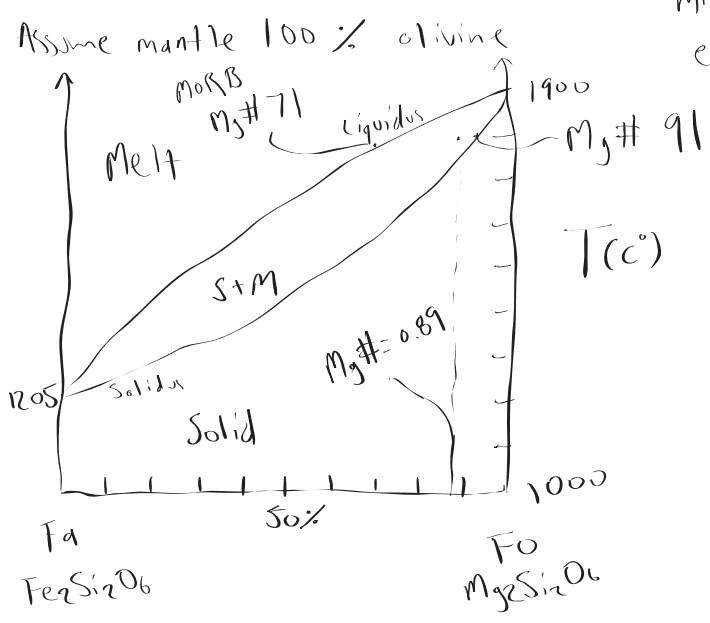 Assume mantle 100 % olivine
MORB
Mg# 71
Liquidus
1900
Mg# 91
Melt
T(c°)
S+M
Mg#= 0.89
1205
Solidus
Solid
50%
1000
Fa
Fe2Si2O6
Fo
Mg2Si2O6